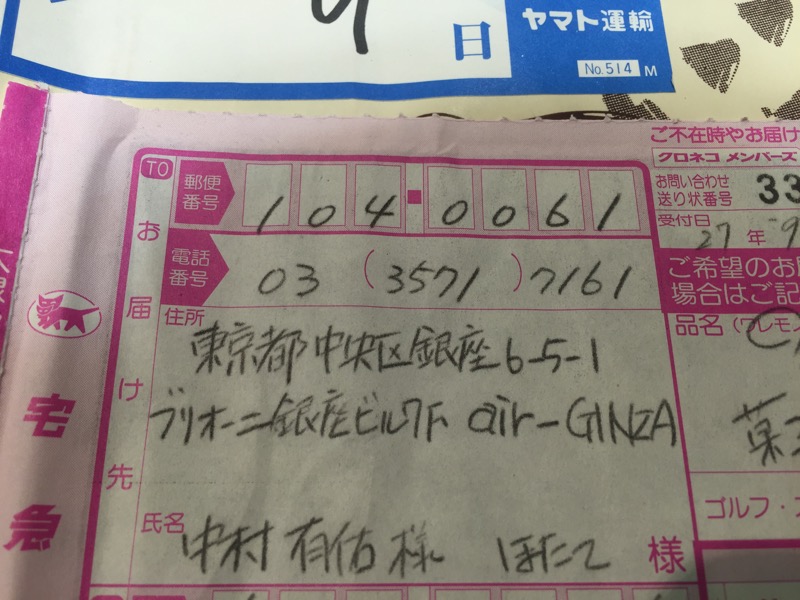 9日
ヤマト運輸
No.514 M
ご不在時やお届け
クロネコ メンバーズ
TO
郵便番号 104-0061
お問い合わせ
送り状番号 33
受付日 27年 9
電話番号 03(3571)7161
ご希望のお
場合はご記
お届け先
住所
東京都中央区銀座6-5-1
ブリオーニ銀座ビル7F air-GINZA
品名
菓子
ゴルフ・ス
氏名
中村 有佑 様 ほたて 様
宅急